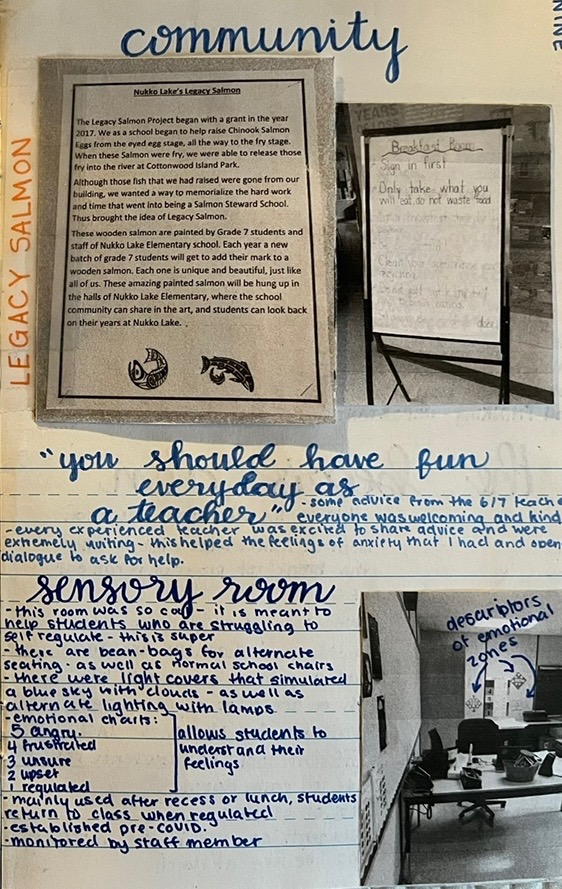 community
LEGACY SALMON
Nukko Lake's Legacy Salmon
The Legacy Salmon Project began with a grant in the year
2017. We as a school began to help raise Chinook Salmon
Eggs from the eyed egg stage, all the way to the fry stage.
When these Salmon were fry, we were able to release those
fry into the river at Cottonwood Island Park.
Although those fish that we had raised were gone from our
building, we wanted a way to memorialize the hard work
and time that went into being a Salmon Steward School.
Thus brought the idea of Legacy Salmon.
These wooden salmon are painted by Grade 7 students and
staff of Nukko Lake Elementary school. Each year a new
batch of grade 7 students will get to add their mark to a
wooden salmon. Each one is unique and beautiful, just like
all of us. These amazing painted salmon will be hung up in
the halls of Nukko Lake Elementary, where the school
community can share in the art, and students can look back
on their years at Nukko Lake.
YEARS
Breakfast Room
Sign in first
Only take what you
will eat, do not waste food
door
"you should have fun
everyday as
a teacher" - some advice from the 6/7 teache
everyone was welcoming and kind
- every experienced teacher was excited to share advice and were
extremely inviting - this helped the feelings of anxiety that I had and open
dialogue to ask for help.
sensory room
- this room was so cozy - it is meant to
help students who are struggling to
self regulate - this is super
- there are bean-bags for alternate
seating - as well as normal school chairs
- there were light covers that simulated
a blue sky with clouds - as well as
alternate lighting with lamps
- emotional charts:
5 angry.
4 frustrated
3 unsure
2 upset
1 regulated
allows students to
understand their
feelings
- mainly used after recess or lunch, students
return to class when regulated
- established pre-COVID.
- monitored by staff member
descriptors
of emotional
zones